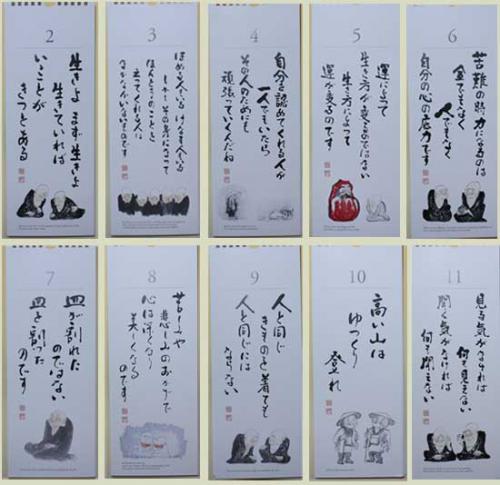 2
生きよ まず生きよ
生きていれば
いいことが
きっとある
3
ほめる人もいる けなす人もいる
しかし その身になって
ほんとうのことを
なかなかいないものです
4
自分を認めてくれる人が
一人でもいたら
その人のためにも
頑張っていくんだね
5
運によって
生き方が変るのではない
生き方によって
運が変るのです
6
苦難の時力になるのは
金でもなく
人でもなく
自分の心の底力です
7
皿が割れた
のではない
皿を割った
のです
8
苦しみや
悲しみのおかげで
心は深くなり
美しくなる
のです
9
人と同じ
きものを着ても
人と同じには
ならない
10
高い山は
ゆっくり
登れ
11
見る気がなければ
何も見えない
聞く気がなければ
何も聞えない